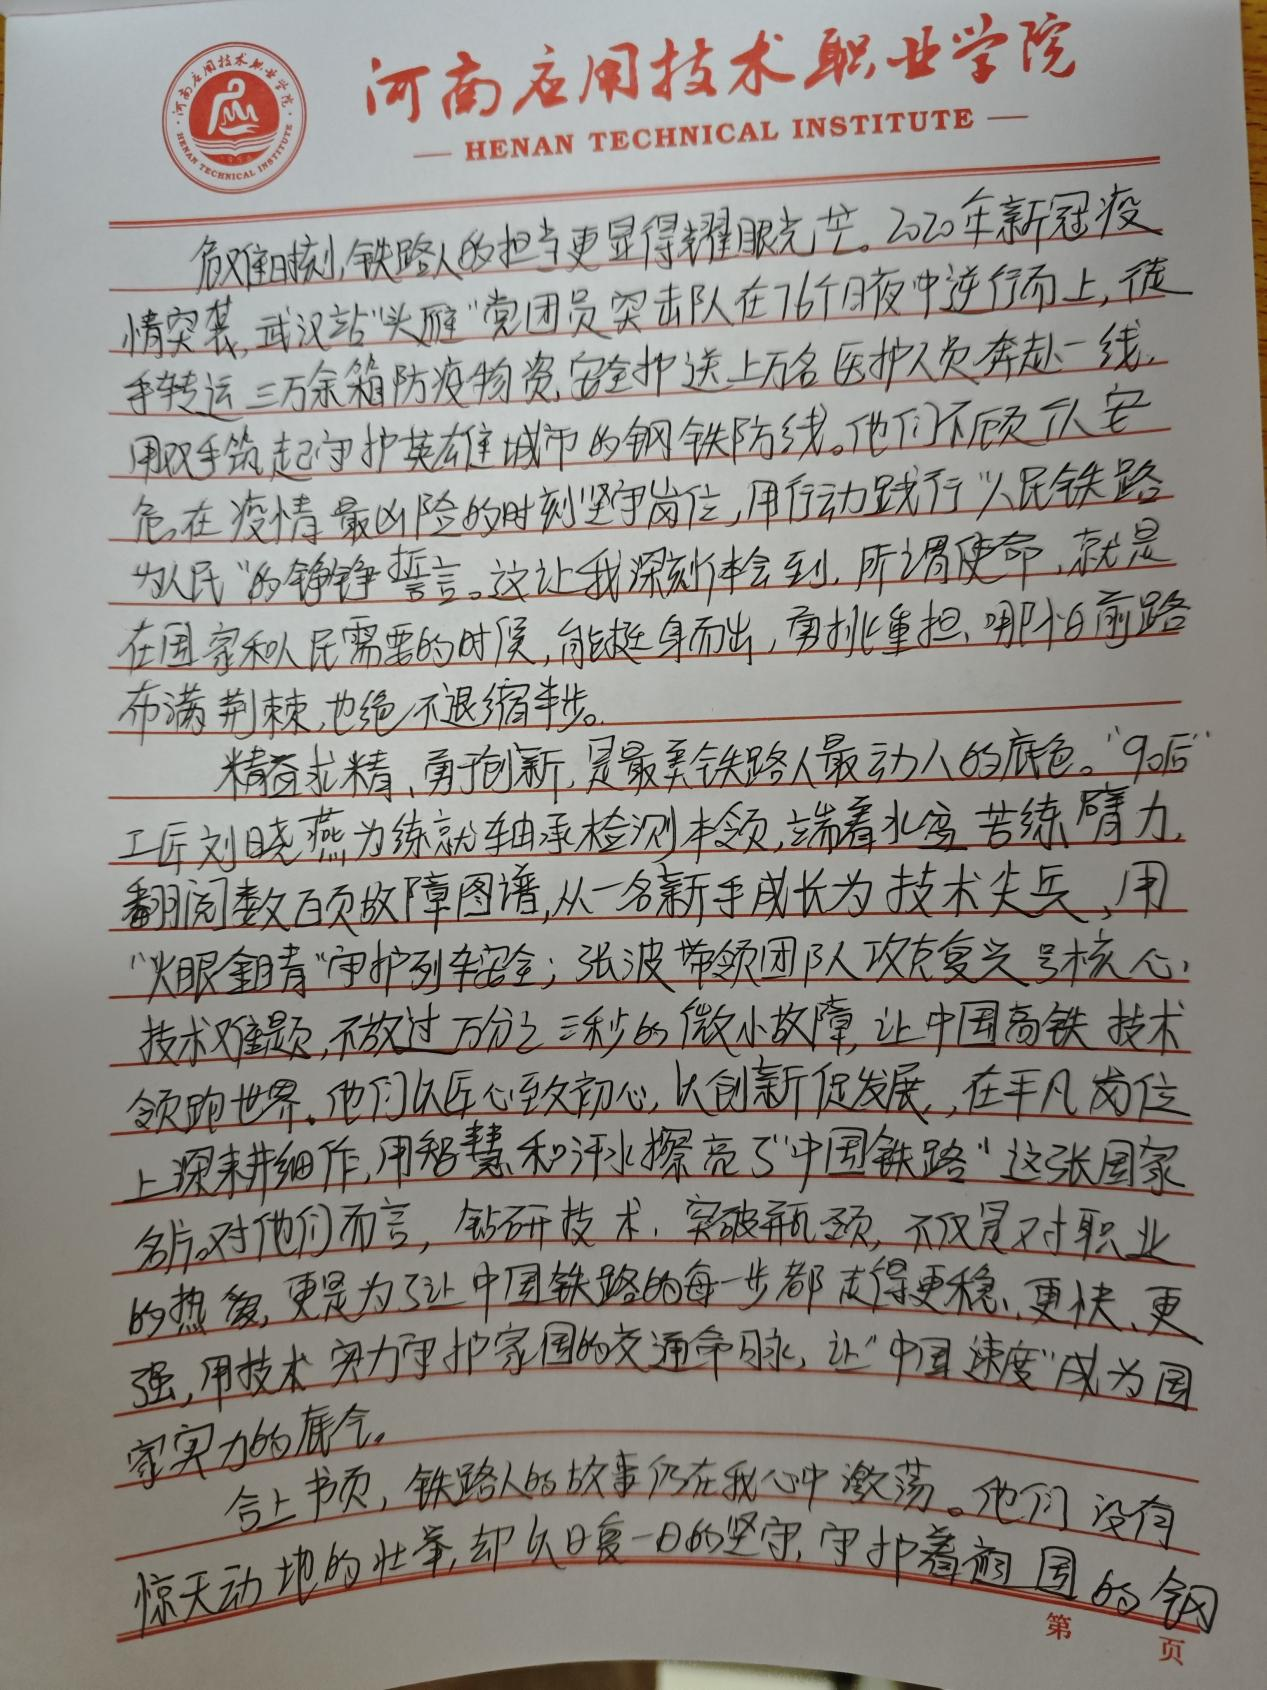 河南应用技术职业学院
HENAN TECHNICAL INSTITUTE
·河南应用技术职业学院·
HENAN TECHNICAL INSTITUTE
危难时刻,铁路人的担当更显得耀眼光芒。2020年新冠疫
情突袭,武汉站“头雁”党团员突击队在76个日夜中逆行而上,徒
手转运三万余箱防疫物资,安全护送上万名医护人员奔赴一线,
用双手筑起守护英雄城市的钢铁防线。他们不顾个人安
危,在疫情最凶险的时刻坚守岗位,用行动践行“人民铁路
为人民”的铮铮誓言。这让我深刻体会到,所谓使命,就是
在国家和人民需要的时候,能挺身而出,勇挑重担,哪怕前路
布满荆棘,也绝不退缩半步。
精益求精、勇于创新,是最美铁路人最动人的底色。“90后”
工匠刘晓燕为练就轴承检测本领,端着水壶苦练臂力,
翻阅数百页故障图谱,从一名新手成长为技术尖兵,用
“火眼金睛”守护列车安全;张波带领团队攻克复兴号核心
技术难题,不放过万分之三秒的微小故障,让中国高铁技术
领跑世界。他们以匠心致初心,以创新促发展,,在平凡岗位
上深耕细作,用智慧和汗水擦亮了“中国铁路”这张国家
名片。对他们而言,钻研技术、突破瓶颈,不仅是对职业
的热爱,更是为了让中国铁路的每一步都走得更稳、更快、更
强,用技术实力守护家国的交通命脉,让“中国速度”成为国
家实力的底气。
合上书页,铁路人的故事仍在我心中激荡。他们没有
惊天动地的壮举,却以日复一日的坚守,守护着祖国的钢
第 页